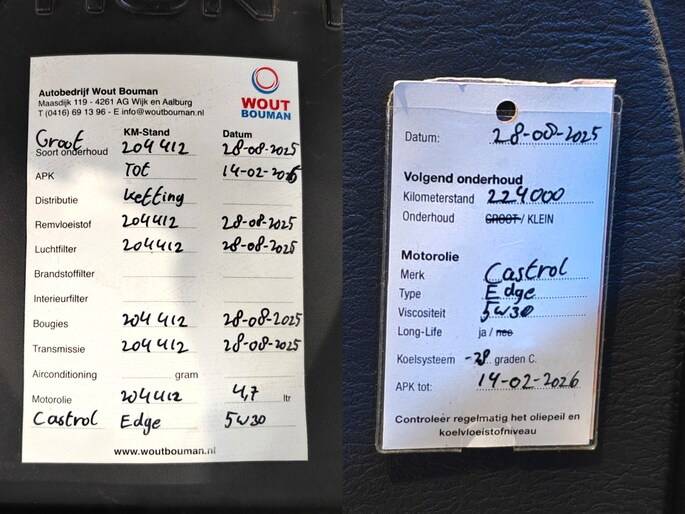 Autobedrijf Wout Bouman
Maasdijk 119 - 4261 AG Wijk en Aalburg
T (0416) 69 13 96 - E info@woutbouman.nl
WOUT
BOUMAN
KM-Stand Datum
Groot
Soort onderhoud 204412 28-08-2025
APK Tot 14-02-2026
Distributie ketting
Remvloeistof 204412 28-08-2025
Luchtfilter 204412 28-08-2025
Brandstoffilter
Interieurfilter
Bougies 204412 28-08-2025
Transmissie 204412 28-08-2025
Airconditioning gram
Motorolie 204412 4,7 ltr
Castrol Edge 5W30
www.woutbouman.nl
Datum: 28-08-2025
Volgend onderhoud
Kilometerstand 224000
Onderhoud GROOT / KLEIN
Motorolie
Merk Castrol
Type Edge
Viscositeit 5W30
Long-Life ja / nee
Koelsysteem -28 graden C.
APK tot: 14-02-2026
Controleer regelmatig het oliepeil en
koelvloeistofniveau